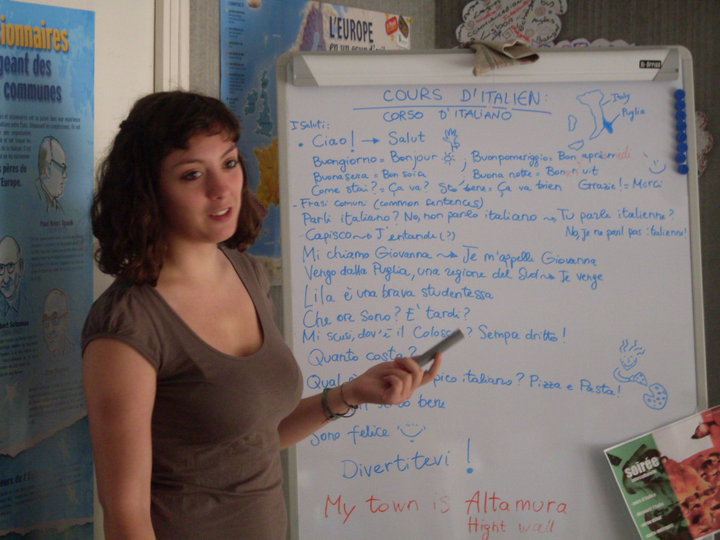 ctionnaires
geant des
communes
pères de
l'Europe.
L'EUROPE
COURS D'ITALIEN:
CORSO D'ITALIANO
Italy
Puglia
I Saluti:
• Ciao! → Salut
Buongiorno = Bonjour ; Buonpomeriggio = Bon après-midi
Buonasera = Bonsoir Buona notte = Bonne nuit
Come stai? = Ça va? Sto bene = Ça va bien Grazie! = Merci
- Frasi comuni (common sentences)
Parli italiano? No, non parlo italiano → Tu parle italienne?
- Capisco → J'entande (?) No, Je ne parl pas italienne!
Mi chiamo Giovanna → Je m'appelle Giovanna
Vengo dalla Puglia, una regione del Sud → Je venge
Lila è una brava studentessa
Che ore sono? E' tardi?
Mi scusi, dov'è il Colosseo? Sempa dritto!
Quanto costa?
Qual pico italiano? Pizza e Pasta!
bene
Sono felice
Divertitevi!
My town is Altamura
Hight wall
soirée